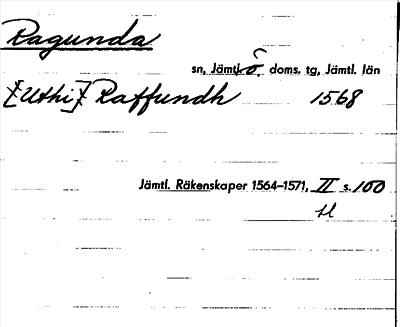 Ragunda
sn, Jämtl. ö. doms. tg, Jämtl. län
[Uthi] Raffundh 1568
Jämtl. Räkenskaper 1564–1571, II s. 100